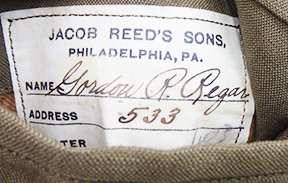 JACOB REED'S SONS,
PHILADELPHIA, PA.
NAME Gordon R. Regar
ADDRESS 533